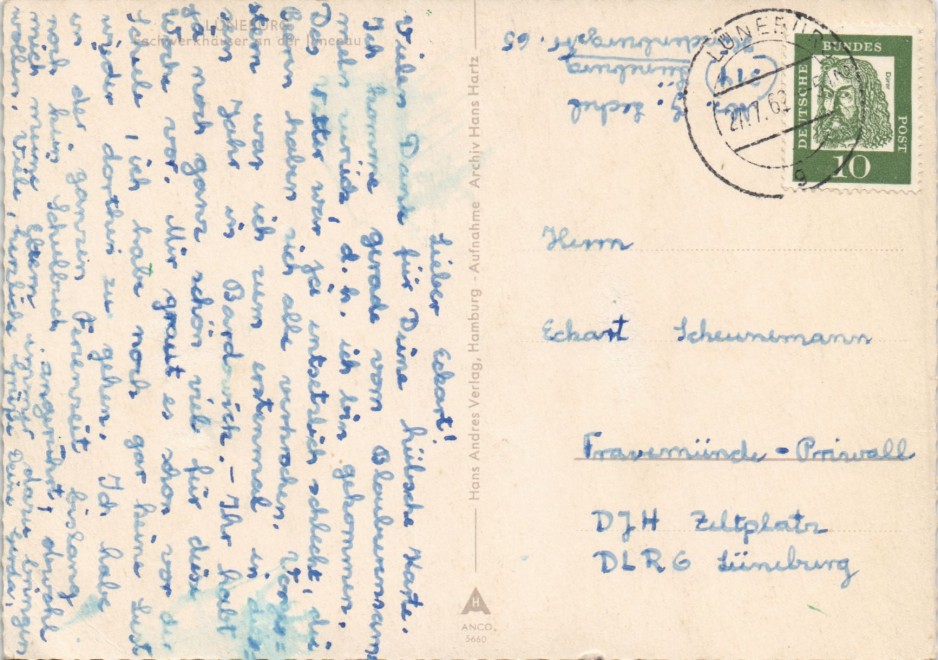 LÜNEBURG
Fachwerkhäuser an der Ilmenau
Lieber Eckart!
Vielen Dank für Deine hübsche Karte.
Ich komme gerade vom
mehr zurück, d.h. ich bin gekommen.
Das Wetter war ja entsetzlich schlecht, die
haben sich alle verkrochen.
stern war ich zum erstenmal in
Jahr in Bardowick. - Ihr habt
ja noch ganz schön viel für diese
Woche vor. Mir graut es schon vor der
Schule, ich habe noch gar keine Lust
wieder dorthin zu gehen. Ich habe
in der ganzen Ferienzeit bislang
noch kein Schulbuch angerührt, obwohl
mich meine Eltern immer dazu bringen
wollen. Viele
Hans Andres Verlag, Hamburg - Aufnahme Archiv Hans Hartz
ANCO,
5660
314
Lüneburg
65
LÜNEBURG
DEUTSCHE BUNDESPOST
Dürer
10
Herrn
Eckart Scheunemann
Travemünde - Priwall
DJH Zeltplatz
DLRG Lüneburg